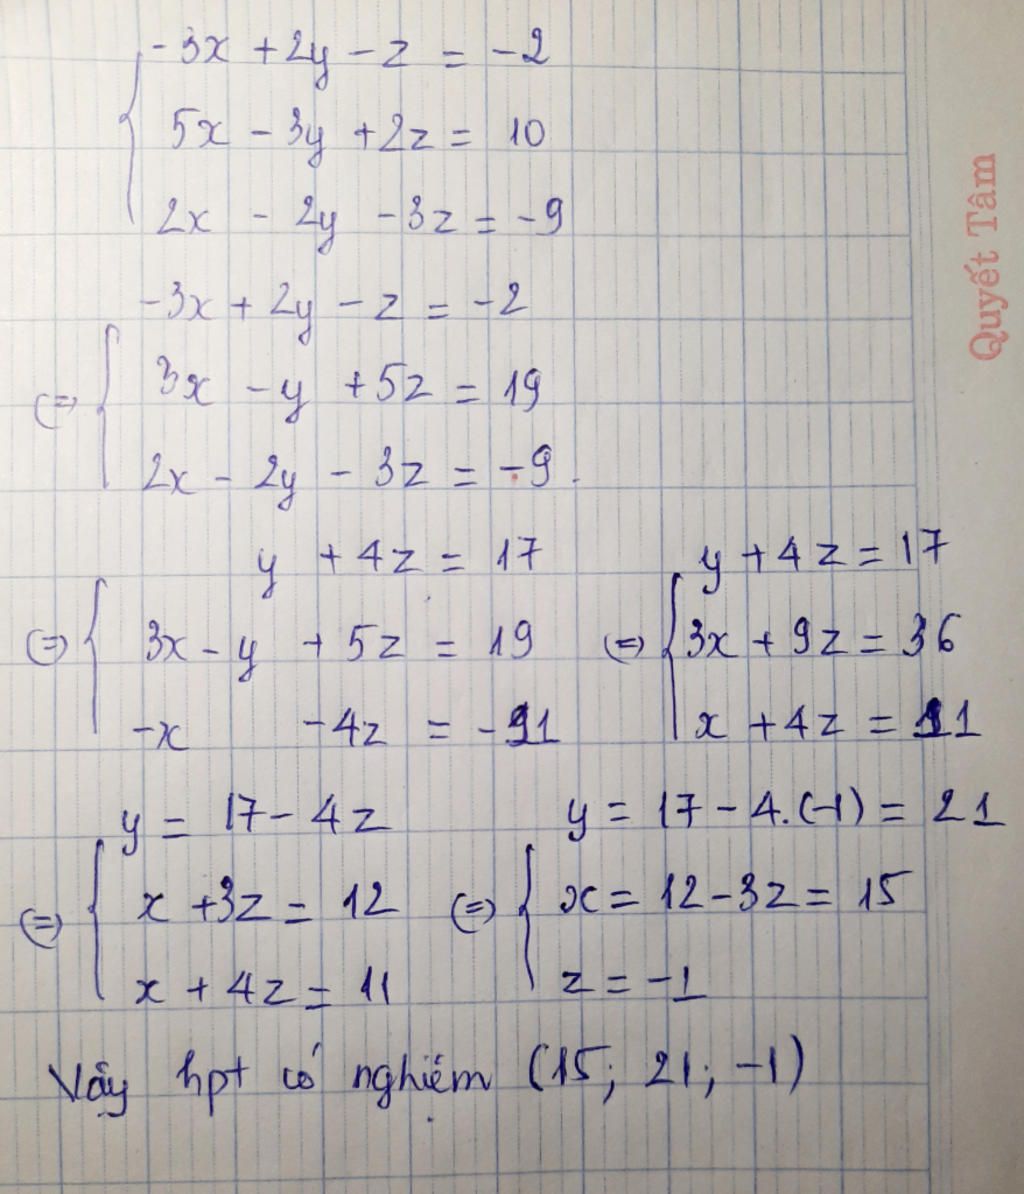 -3x + 2y - z = -2
5x - 3y + 2z = 10
2x - 2y - 3z = -9
-3x + 2y - z = -2
(=) 3x - y + 5z = 19
2x - 2y - 3z = -9.
y + 4z = 17
(=) 3x - y + 5z = 19
-x - 4z = -11
y + 4z = 17
(=) 3x + 9z = 36
x + 4z = 11
y = 17 - 4z
(=) x + 3z = 12
x + 4z = 11
y = 17 - 4.(-1) = 21
(=) x = 12 - 3z = 15
z = -1
Vậy hpt có nghiệm (15; 21; -1)
Quyết Tâm